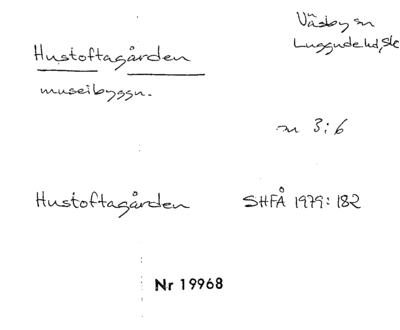 Väsby sn
Luggude hd, Sk
Hustoftagården
museibyggn.
sn 3:6
Hustoftagården SHFÅ 1979:182
Nr 19968